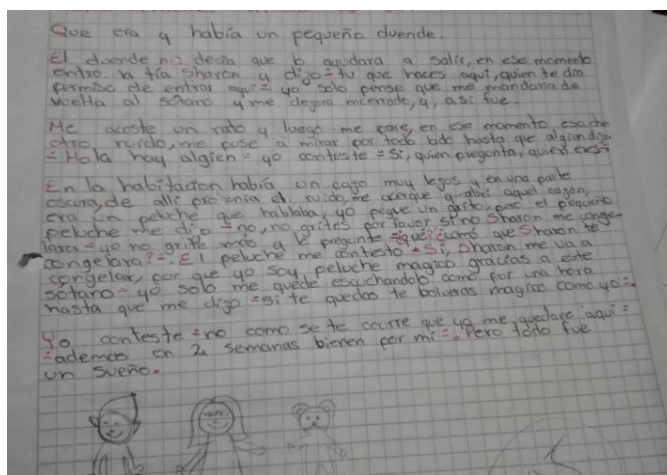 Que era y había un pequeño duende.
El duende me decia que lo ayudara a salir, en ese momento
entro la tía Sharon y dijo = tu que haces aquí, quien te dio
permiso de entrar aquí = yo solo pense que me mandaria de
vuelta al sótano y me dejara encerrado, y, asi fue.
Me acoste un rato y luego me pare, en ese momento, escuche
otro ruido, me puse a mirar por todo lado hasta que algien dijo
= Hola hay algien = yo conteste = Si, quien pregunta, quien eres =
En la habitacion había, un cajo muy lejos y en una parte
oscura, de alli provenia el ruido, me acerque y abri aquel cajon,
era un peluche que hablaba, yo pegue un grito, pero el pequeño
peluche me dijo = no, no grites por favor si no Sharon me conge-
lara = yo no grite mas y le pregunte = que? como que Sharon te
congelara? = El peluche me contesto = Si, Sharon me va a
congelar, por que yo soy, peluche magico gracias a este
sótano = yo solo me quede escuchandolo como por una hora
hasta que me dijo = si te quedas te bolveras magico como yo =
Yo conteste = no como se te ocurre que yo me quedare aqui =
= ademas en 2 semanas bienen por mi =. Pero todo fue
un sueño.